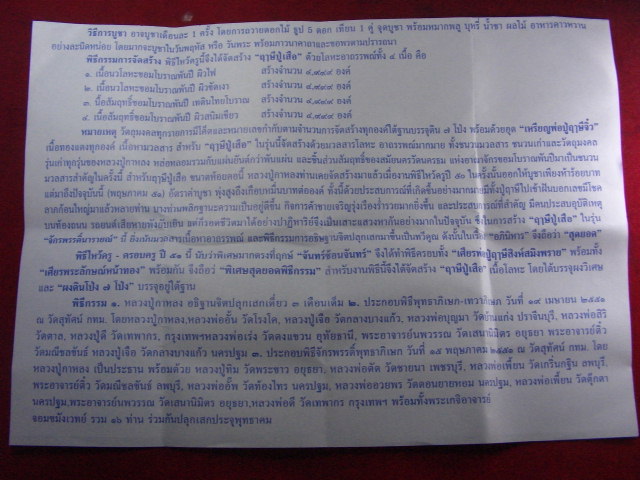 วิธีการบูชา อาจบูชาเดือนละ 1 ครั้ง โดยการถวายดอกไม้ ธูป 5 ดอก เทียน 1 คู่ จุดบูชา พร้อมหมากพลู บุหรี่ น้ำชา ผลไม้ อาหารคาวหวาน
อย่างละนิดหน่อย โดยมากจะบูชาในวันพฤหัส หรือ วันพระ พร้อมภาวนาคาถาและขอพรตามปรารถนา
พิธีกรรมการจัดสร้าง พิธีไหว้ครูนี้จึงได้จัดสร้าง "ฤๅษีปู่เสือ" ด้วยโลหะอาถรรพณ์ทั้ง ๔ เนื้อ คือ
๑. เนื้อนวโลหะขอมโบราณพันปี ผิวไฟ สร้างจำนวน ๙,๙๙๙ องค์
๒. เนื้อนวโลหะขอมโบราณพันปี ผิวขัดเงา สร้างจำนวน ๙,๙๙๙ องค์
๓. เนื้อสัมฤทธิ์ขอมโบราณพันปี เทดินไทยโบราณ สร้างจำนวน ๙,๙๙๙ องค์
๔. เนื้อสัมฤทธิ์ขอมโบราณพันปี ผิวสนิมเขียว สร้างจำนวน ๙,๙๙๙ องค์
หมายเหตุ วัตถุมงคลทุกรายการมีโค้ดและหมายเลขกำกับตามจำนวนการจัดสร้างทุกองค์ใต้ฐานบรรจุดิน ๗ โป่ง พร้อมด้วยอุด "เหรียญพ่อปู่ฤๅษีจิ๋ว"
เนื้อทองแดงทุกองค์ เนื้อหามวลสาร สำหรับ "ฤๅษีปู่เสือ" ในรุ่นนี้จัดสร้างด้วยมวลสารโลหะ อาถรรพณ์มากมาย ทั้งชนวนมวลสาร ชนวนเก่าและวัตถุมงคล
รุ่นเก่าทุกรุ่นของหลวงปู่กาหลง หล่อหลอมรวมกับแผ่นยันต์กว่าพันแผ่น และชิ้นส่วนสัมฤทธิ์ของสมัยนครวัดนครธม แห่งอาณาจักรขอมโบราณพันปีมาเป็นชนวน
มวลสารสำคัญในครั้งนี้ สำหรับฤๅษีปู่เสือ ขนาดห้อยคอนี้ หลวงปู่กาหลงท่านเคยจัดสร้างมาแล้วเมื่องานพิธีไหว้ครูปี ๕๐ ในครั้งนั้นออกให้บูชาเพียงห้าร้อยบาท
แต่มาถึงปัจจุบันนี้ (พฤษภาคม ๕๑) อัตราค่าบูชา พุ่งสูงถึงเกือบหมื่นบาทต่อองค์ ทั้งนี้ด้วยประสบการณ์ที่เกิดขึ้นอย่างมากมายมีทั้งปู่ฤๅษีไปเข้าฝันบอกเลขมีโชค
ลาภก้อนใหญ่มาแล้วหลายท่าน บางท่านพลิกฐานะความเป็นอยู่ดีขึ้น กิจการค้าขายเจริญรุ่งเรืองร่ำรวยมากยิ่งขึ้น และประสบการณ์ที่สำคัญ มีคนประสบอุบัติเหตุ
บนท้องถนน รถยนต์เสียหายพังยับเยิน แต่ก็รอดชีวิตมาได้อย่างปาฏิหาริย์จึงเป็นเสาะแสวงหากันอย่างมากในปัจจุบัน ซึ่งในการสร้าง "ฤๅษีปู่เสือ" ในรุ่น
"จักรพรรดิ์นารายณ์" นี้ ยิ่งเน้นมวลสารเนื้อหาอาถรรพณ์ และพิธีกรรมการอธิษฐานจิตปลุกเสกมาขึ้นเป็นทวีคูณ ดังนั้นในเรื่อง "อภินิหาร" จึงถือว่า "สุดยอด"
พิธีไหว้ครู - ครอบครู ปี ๕๑ นี้ นับว่าพิเศษมากตรงที่ฤกษ์ "จันทร์ซ้อนจันทร์" จึงได้ทำพิธีครอบทั้ง "เศียรพ่อปู่ฤๅษีสิงห์สมิงพราย" พร้อมทั้ง
"เศียรพระลักษณ์หน้าทอง" พร้อมกัน จึงถือว่า "พิเศษสุดยอดพิธีกรรม" สำหรับงานพิธีนี้จึงได้จัดสร้าง "ฤๅษีปู่เสือ" เนื้อโลหะ โดยได้บรรจุผงวิเศษ
และ "ผงดินโป่ง ๗ โป่ง" บรรจุอยู่ใต้ฐาน
พิธีกรรม ๑. หลวงปู่กาหลง อธิฐานจิตปลุกเสกเดี่ยว ๓ เดือนเต็ม ๒. ประกอบพิธีพุทธาภิเษก-เทวาภิเษก วันที่ ๑๙ เมษายน ๒๕๕๑
ณ วัดสุทัศน์ กทม. โดยหลวงปู่กาหลง,หลวงพ่ออั้น วัดโรงโค, หลวงปู่เจือ วัดกลางบางแก้ว, หลวงพ่อบุญมา วัดบ้านแก่ง ปราจีนบุรี, หลวงพ่อสิริ
วัดตาล, หลวงปู่ดี วัดเทพากร, กรุงเทพฯหลวงพ่อเร่ง วัดดงแขวน อุทัยธานี, พระอาจารย์นพวรรณ วัดเสนานิมิตร อยุธยา พระอาจารย์ติ๋ว
วัดมณีชลขันธ์ หลวงปู่เจือ วัดกลางบางแก้ว นครปฐม ๓. ประกอบพิธีจักรพรรดิ์พุทธาภิเษก วันที่ ๑๕ พฤษภาคม ๒๕๕๑ ณ วัดสุทัศน์ กทม. โดย
หลวงปู่กาหลง เป็นประธาน พร้อมด้วย หลวงปู่ทิม วัดพระขาว อยุธยา, หลวงพ่อตัด วัดชายนา เพชรบุรี, หลวงพ่อเพี้ยน วัดเกริ่นกฐิน ลพบุรี,
พระอาจารย์ติ๋ว วัดมณีชลขันธ์ ลพบุรี, หลวงพ่ออั๊พ วัดท้องไทร นครปฐม, หลวงพ่ออวยพร วัดดอนยายหอม นครปฐม, หลวงพ่อเพี้ยน วัดตุ๊กตา
นครปฐม,พระอาจารย์นพวรรณ วัดเสนานิมิตร อยุธยา,หลวงพ่อดี วัดเทพากร กรุงเทพฯ พร้อมทั้งพระเกจิอาจารย์
จอมขมังเวทย์ รวม ๑๖ ท่าน ร่วมกันปลุกเสกประจุพุทธาคม